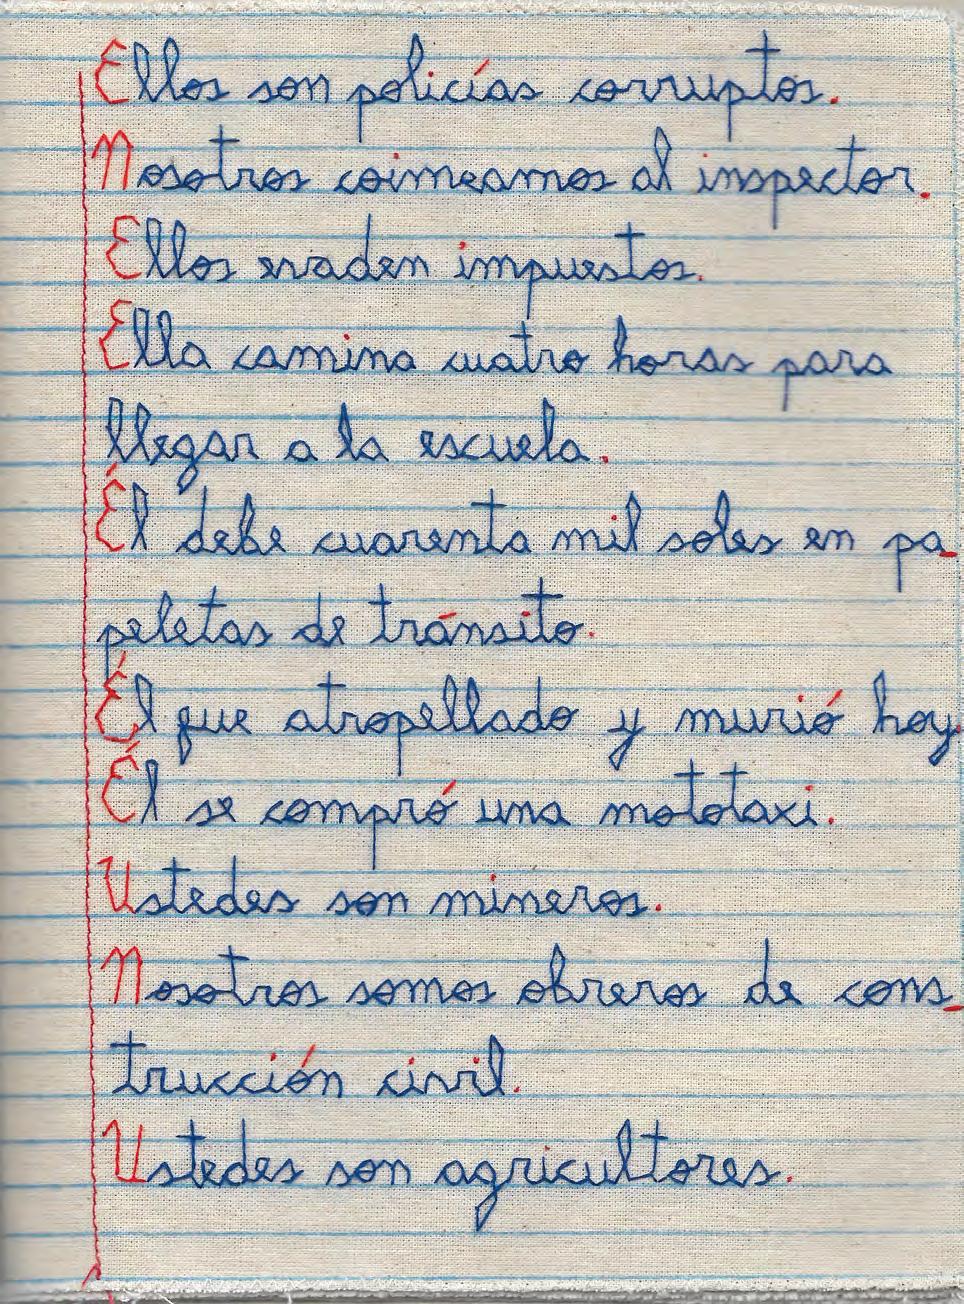 Ellos son policías corruptos.
Nosotros coimeamos al inspector.
Ellos evaden impuestos.
Ella camina cuatro horas para
llegar a la escuela.
Él debe cuarenta mil soles en pa_
peletas de tránsito.
Él fue atropellado y murió hoy.
Él se compró una mototaxi.
Ustedes son mineros.
Nosotros somos obreros de cons_
trucción civil.
Ustedes son agricultores.